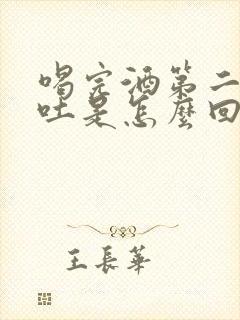 喝完酒第二
吐是怎麼回
王長華